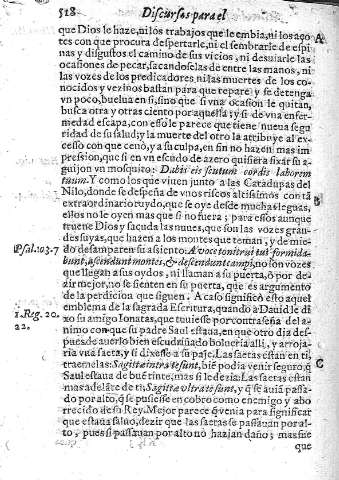 518 Discursos para el
que Dios le haze, ni los trabajos que le embia, ni los aço
tes con que procura despertarle, ni el sembrarle de espi- A
nas y disgustos el camino de sus vicios, ni desuiarle las
ocasiones de pecar, sacandoselas de entre las manos, ni
las vozes de los predicadores, ni las muertes de los co-
nocidos y vezinos bastan para que repare y se detenga
vn poco, buelua en si, sino que si vna ocasion le quitan,
busca otra y otras ciento por aquella: y si de vna enfer-
medad escapa, con esso le parece que tiene nueua segu
ridad de su salud; y la muerte del otro la attribuye al ex-
cesso con que cenò, y a su culpa, en fin no hazen mas im
pression, que si en vn escudo de azero quisiera fixar su a-
guijon vn mosquito: Dabis eis scutum cordis laborem
tuum. Y como los que viuen junto a las Catadupas del
Nilo, donde se despeña de vnos riscos altissimos con tã
extraordinario ruydo, que se oye desde muchas leguas, B
ellos no le oyen mas que si no fuera; para estos aunque
truene Dios y sacuda las nuues, que son las vozes gran-
des suyas, que hazen a los montes que teman, y de mie-
Psal. 103. 7 do desamparen su assiento. A voce tonitrui tui formida-
bunt, ascendunt montes, & descendunt campi, no son vozes
que llegan a sus oydos, ni llaman a su puerta, o por de-
zir mejor, no se sienten en su puerta, que es argumento
de la perdicion que siguen. A caso significò esto aquel
1. Reg. 20. emblema de la sagrada Escritura, quando a Dauid le dio
22. su amigo Ionatas, que tuuiesse por contraseña del a-
nimo con que su padre Saul estaua, en que otro dia des-
pues de auerlo bien escudriñado bolueria alli, y arroja-
ria vna saeta, y si dixesse a su paje. Las saetas estan en ti,
traemelas: Sagittæ intra te sunt, biẽ podia venir seguro, q̃ C
Saul estaua de buẽ tinte, mas si le dezia: Las saetas estan
mas adelãte de ti, Sagittæ ultra te sunt, y q̃ se auiã passa-
do por alto, q̃ se pusiesse en cobro como enemigo y abo
rrecido de su Rey. Mejor parece q̃ venia para significar
que estaua saluo, dezir que las saetas se passauan por al-
to, pues si passauan por alto no hazian daño; mas fue
que